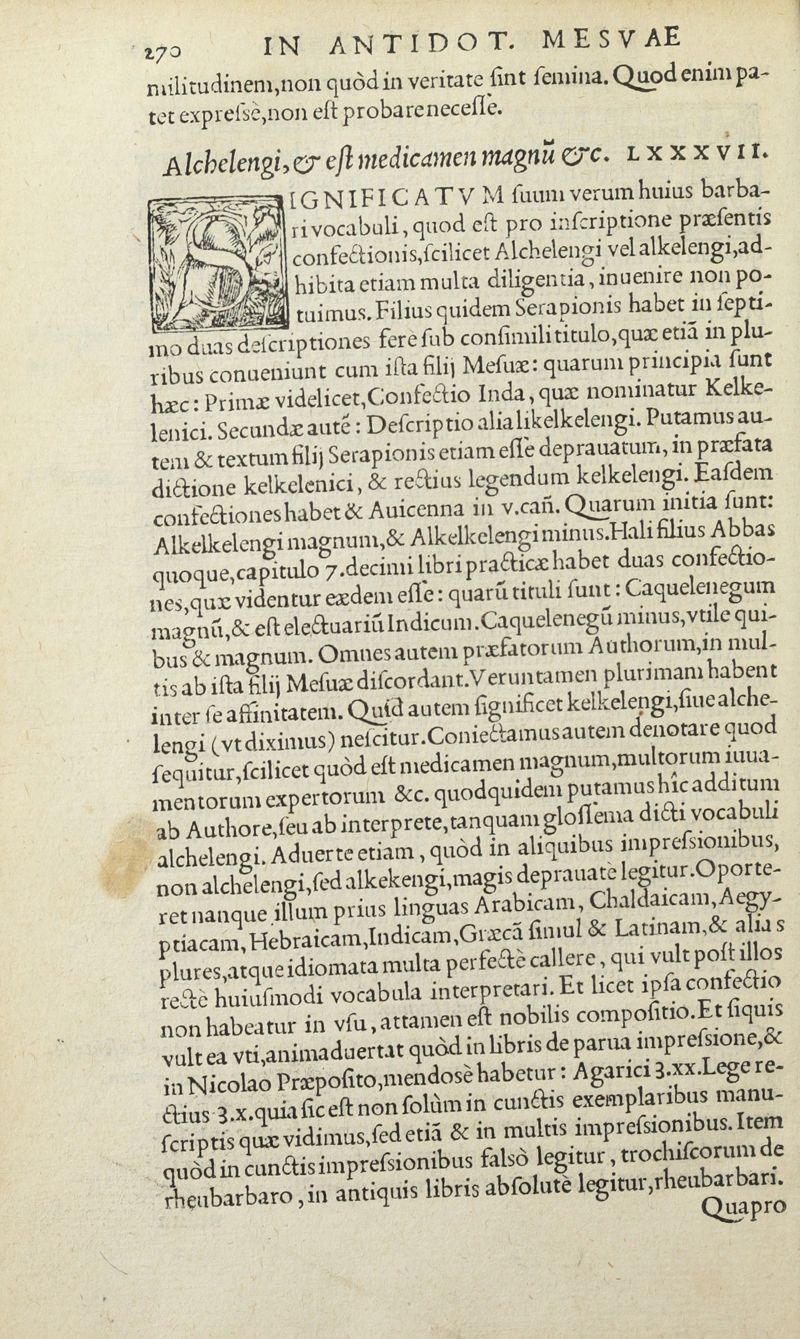 270 IN ANTIDOT. MESVAE
militudinem,non quòd in veritate ſint ſemina. Quod enim pa-
tet expreſsè,non eſt probare neceſſe.
Alchelengi,& eſt medicamen magnũ &c. LXXXVII.
SIGNIFICATVM ſuum verum huius barba-
ri vocabuli, quod eſt pro inſcriptione præſentis
confectionis,ſcilicet Alchelengi vel alkelengi,ad-
hibita etiam multa diligentia, inuenire non po-
tuimus. Filius quidem Serapionis habet in ſepti-
mo duas deſcriptiones ferè ſub conſimili titulo,quæ etiã in plu-
ribus conueniunt cum iſta filij Meſuæ: quarum principia ſunt
hæc: Primæ videlicet,Confectio Inda, quæ nominatur Kelke-
lenici. Secundæ autẽ: Deſcriptio alia likelkelengi. Putamus au-
tem & textum filij Serapionis etiam eſſe deprauatum, in præfata
dictione kelkelenici, & rectius legendum kelkelengi. Eaſdem
confectiones habet & Auicenna in v.cañ. Quarum initia ſunt:
Alkelkelengi magnum,& Alkelkelengi minus.Hali filius Abbas
quoque,capitulo 7.decimi libri practicæ habet duas confectio-
nes,quæ videntur eædem eſſe: quarũ tituli ſunt: Caquelenegum
magnũ,& eſt electuariũ Indicum.Caquelenegũ minus,vtile qui-
bus & magnum. Omnes autem præfatorum Authorum,in mul-
tis ab iſta filij Meſuæ diſcordant.Veruntamen plurimam habent
inter ſe affinitatem. Quid autem ſignificet kelkelengi,ſiue alche-
lengi (vt diximus) neſcitur.Coniectamus autem denotare quod
ſequitur,ſcilicet quòd eſt medicamen magnum,multorum iuua-
mentorum expertorum &c. quodquidem putamus hic additum
ab Authore,ſeu ab interprete,tanquam gloſſema dicti vocabuli
alchelengi. Aduerte etiam, quòd in aliquibus impreſsionibus,
non alchelengi,ſed alkekengi,magis deprauatè legitur.Oporte-
ret nanque illum prius linguas Arabicam, Chaldaicam,Aegy-
ptiacam,Hebraicam,Indicam,Græcã ſimul & Latinam,& alias
plures,atque idiomata multa perfectè callere, qui vult poſt illos
rectè huiuſmodi vocabula interpretari. Et licet ipſa confectio
non habeatur in vſu, attamen eſt nobilis compoſitio.Et ſiquis
vult ea vti,animaduertat quòd in libris de parua impreſsione,&
in Nicolao Præpoſito,mendosè habetur: Agarici ʒ.xx.Lege re-
ctius ʒ.x.quia ſic eſt non ſolùm in cunctis exemplaribus manu-
ſcriptis quæ vidimus,ſed etiã & in multis impreſsionibus. Item
quòd in cunctis impreſsionibus falsò legitur, trochiſcorum de
rheubarbaro, in antiquis libris abſolutè legitur,rheubarbari.
Quapro